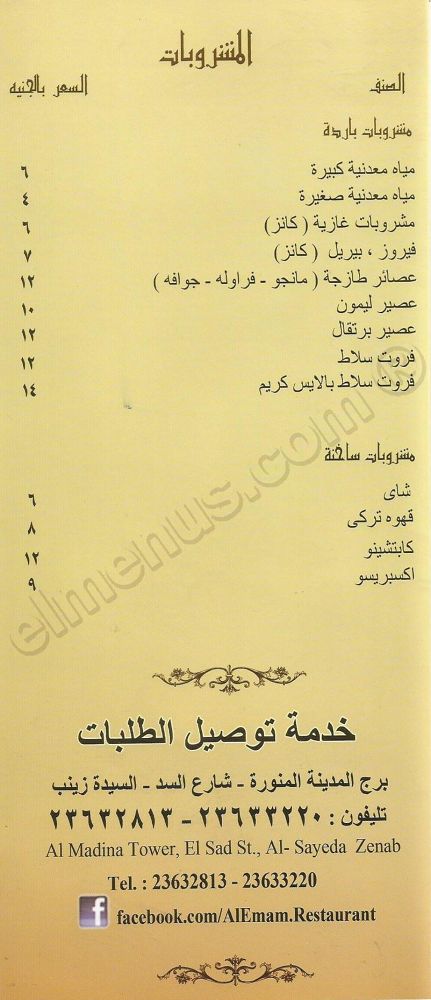 المشروبات
الصنف السعر بالجنيه
مشروبات باردة
مياه معدنية كبيرة ٦
مياه معدنية صغيرة ٤
مشروبات غازية ( كانز) ٦
فيروز ، بيريل ( كانز) ٧
عصائر طازجة ( مانجو - فراوله - جوافه ) ١٢
عصير ليمون ١٠
عصير برتقال ١٢
فروت سلاط ١٢
فروت سلاط بالايس كريم ١٤
مشروبات ساخنة
شاى ٦
قهوه تركى ٨
كابتشينو ١٢
اكسبريسو ٩
elmenus.com ®
خدمة توصيل الطلبات
برج المدينة المنورة - شارع السد - السيدة زينب
تليفون : ٢٣٦٣٣٢٢٠ - ٢٣٦٣٢٨١٣
Al Madina Tower, El Sad St., Al- Sayeda Zenab
Tel. : 23632813 - 23633220
f facebook.com/AlEmam.Restaurant